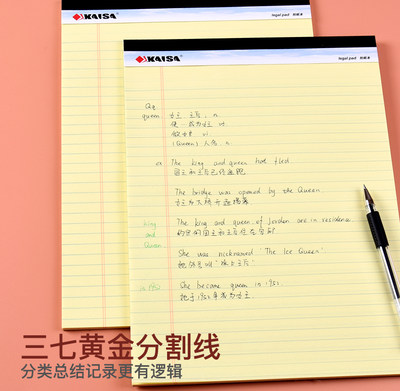 KAISA
legal pad
KAISA
legal pad
Qq
queen
女王, 王后, n
使…成为女王 vt
做女王 vi
(Queen) 人名, n
The king and queen had fled
国王和王后已经逃跑
The bridge was opened by the Queen
女王为大桥开通揭幕
king
and
Queen
The king and queen of Jordan are in residence
约旦的国王和王后住在官邸
She was nicknamed 'The Ice Queen'
她的绰号叫"冰上王后"
She became queen in 1952
她于1952年成为女王.
三七黄金分割线
分类总结记录更有逻辑